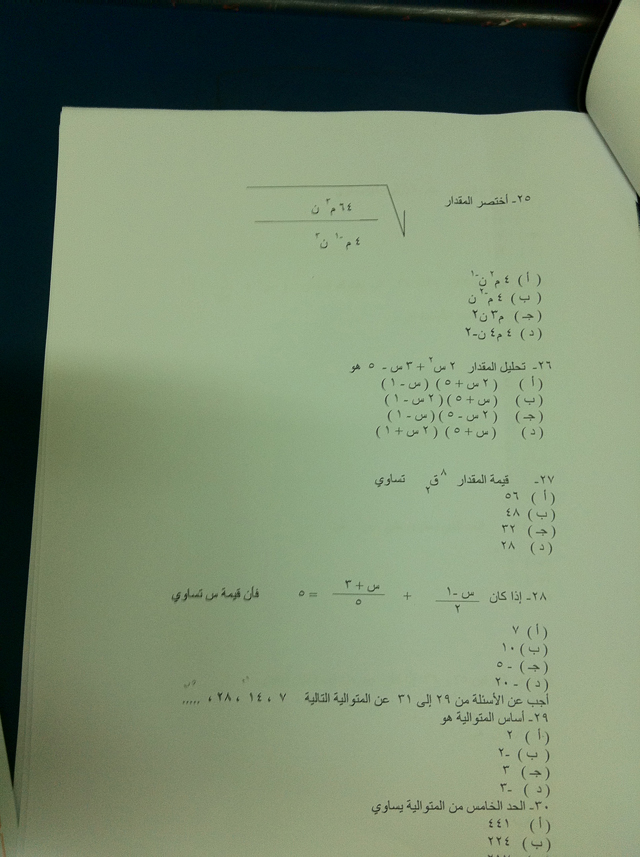 ٢٥- أختصر المقدار
٦٤ م٣ ن
٤ م-١ ن٣
( أ ) ٤ م٢ ن-١
( ب ) ٤ م-٢ ن
( جـ ) م٣ ن٢
( د ) ٤ م٤ ن-٢
٢٦- تحليل المقدار ٢ س٢ + ٣ س - ٥ هو
( أ ) ( ٢ س + ٥ ) ( س - ١ )
( ب ) ( س + ٥ ) ( ٢ س - ١ )
( جـ ) ( ٢ س - ٥ ) ( س - ١ )
( د ) ( س + ٥ ) ( ٢ س + ١ )
٢٧- قيمة المقدار ٨ق٢ تساوي
( أ ) ٥٦
( ب ) ٤٨
( جـ ) ٣٢
( د ) ٢٨
٢٨- إذا كان (س - ١)/٢ + (س + ٣)/٥ = ٥ فأن قيمة س تساوي
( أ ) ٧
( ب ) ١٠
( جـ ) - ٥
( د ) - ٢٠
أجب عن الأسئلة من ٢٩ إلى ٣١ عن المتوالية التالية ٧ ، ١٤ ، ٢٨ ، ,,,,,
٢٩- أساس المتوالية هو
( أ ) ٢
( ب ) -٢
( جـ ) ٣
( د ) -٣
٣٠- الحد الخامس من المتوالية يساوي
( أ ) ٤٤١
( ب ) ٢٢٤